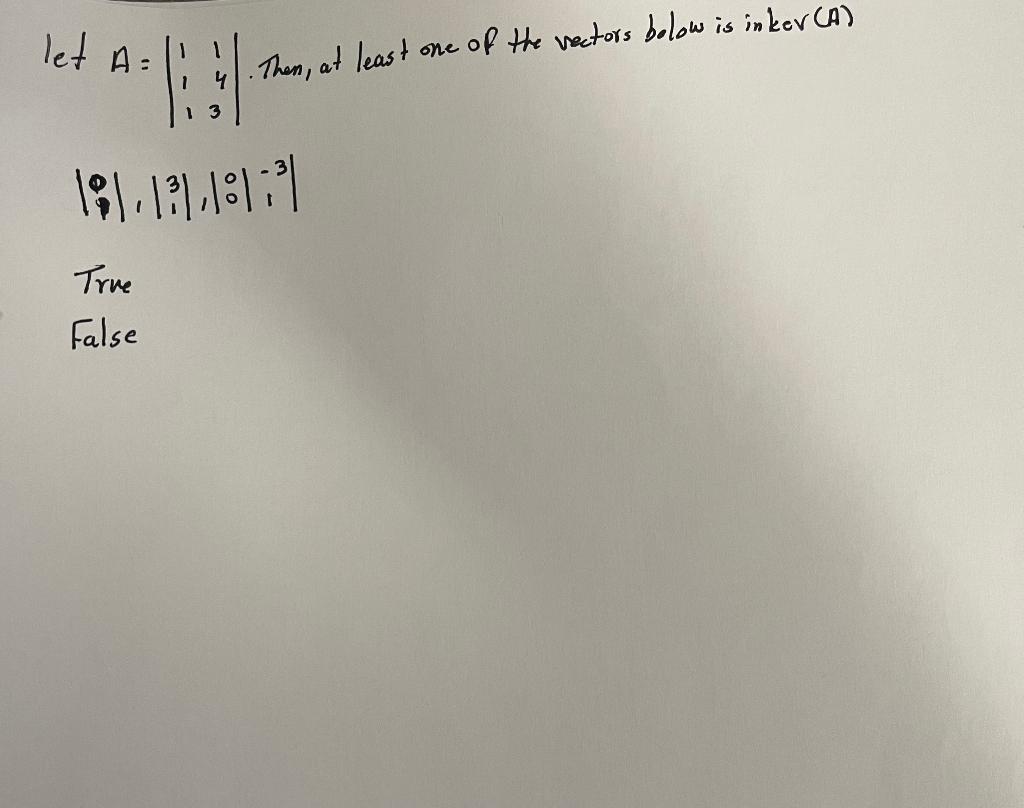 let A = | 1 1 |. Then, at least one of the vectors below is in ker(A)
| 1 4 |
| 1 3 |
| |, | 3 |, | 0 | -3 |
| |, | 1 |, | 0 | 1 |
True
False